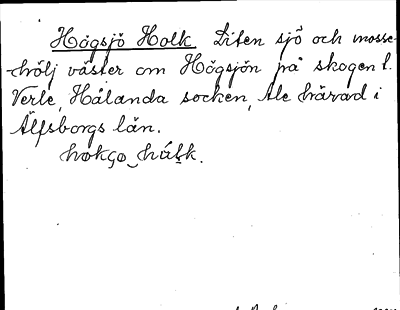 Högsjö Holk. Liten sjö och mosse-
hölj väster om Högsjön på skogen t.
Verle, Hålanda socken, Ale härad i
Älfsborgs län.